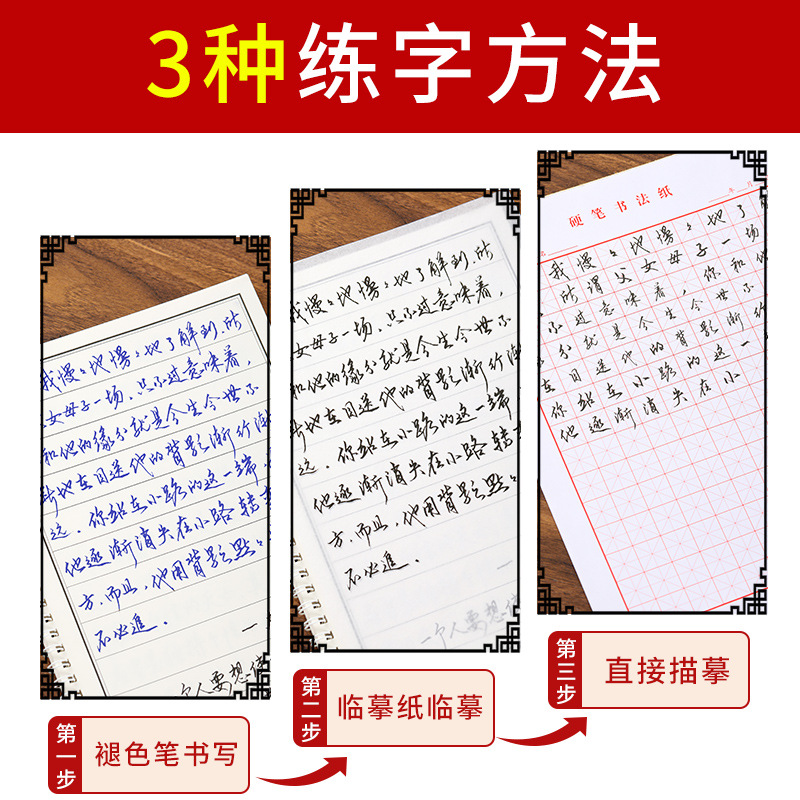 3种练字方法
我慢々地慢々地了解到,所
女母子一场,只不过意味着,
和他的缘分就是今生今世不
断地在目送他的背影渐行渐
远。你站在小路的这一端
他逐渐消失在小路转
方,而且,他用背影默々
不必追。
一个人要想使
第一步
褪色笔书写
我慢々地慢々地了解到,所
女母子一场,只不过意味着,
和他的缘分就是今生今世不
断地在目送他的背影渐行渐
远。你站在小路的这一端
他逐渐消失在小路转
方,而且,他用背影默々
不必追。
一个人要想使
第二步
临摹纸临摹
硬笔书法纸
年 月
我慢々地慢々地了
所谓父女母子一场
不过意味着,你和他
分就是今生今世不
在目送他的背影渐行
你站在小路的这一
他逐渐消失在小
第三步
直接描摹